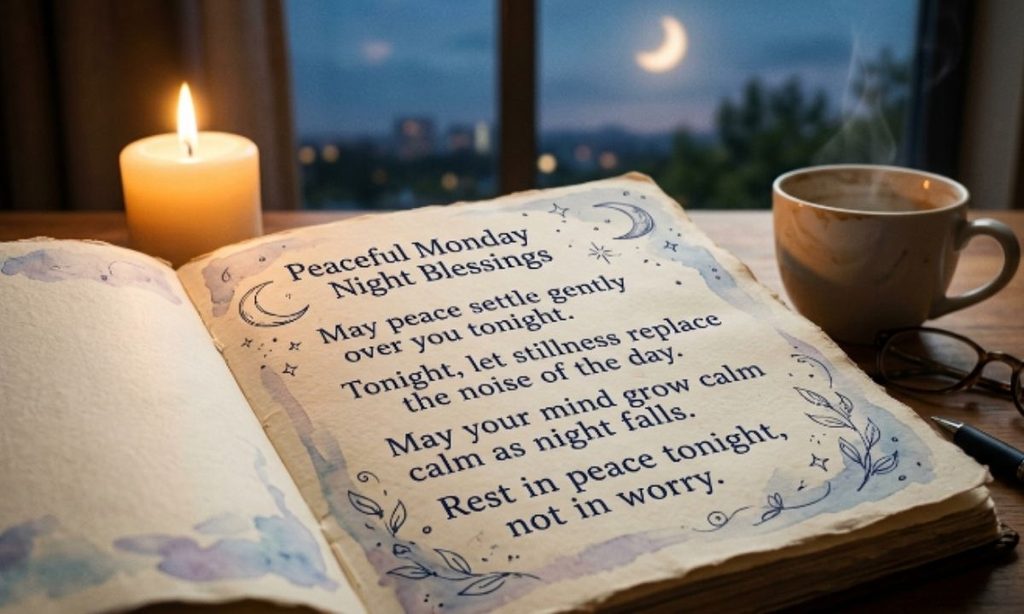 Peaceful Monday
Night Blessings
May peace settle gently
over you tonight.
Tonight, let stillness replace
the noise of the day.
May your mind grow calm
calm as night falls.
Rest in peace tonight,
not in worry.